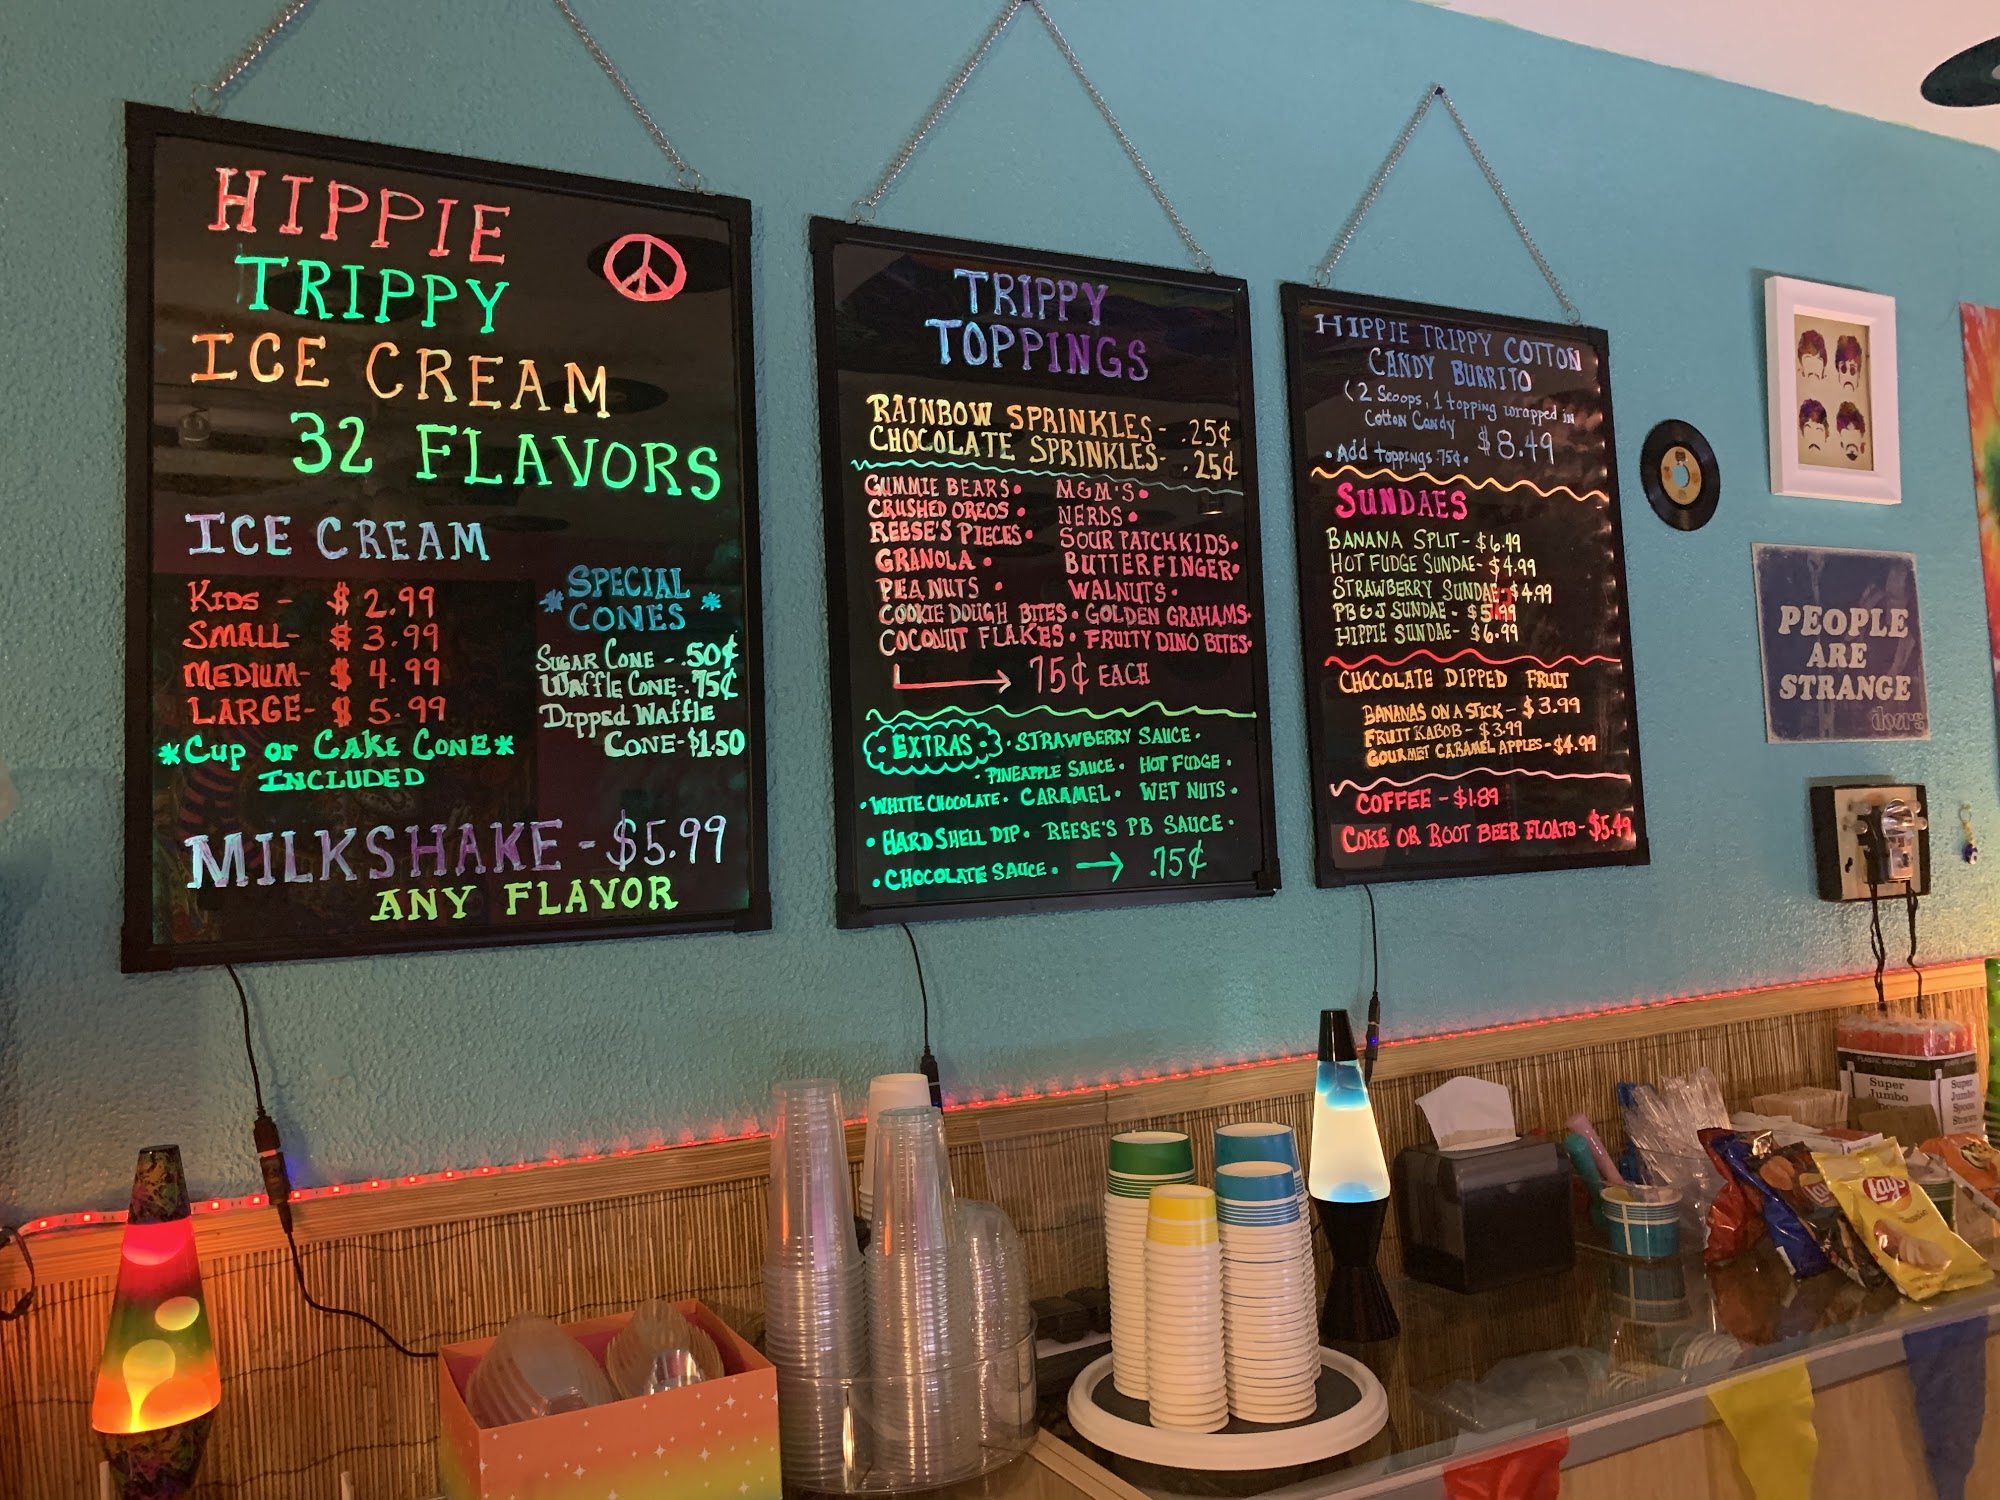 HIPPIE
TRIPPY
ICE CREAM
32 FLAVORS
ICE CREAM
KIDS - $2.99
SMALL- $3.99
MEDIUM- $4.99
LARGE- $5.99
*CUP or CAKE CONE*
INCLUDED
*SPECIAL
CONES*
SUGAR CONE - .50¢
WAFFLE CONE-.75¢
DIPPED WAFFLE
CONE-$1.50
MILKSHAKE - $5.99
ANY FLAVOR
TRIPPY
TOPPINGS
RAINBOW SPRINKLES- .25¢
CHOCOLATE SPRINKLES- .25¢
GUMMIE BEARS• M&M'S•
CRUSHED OREOS • NERDS •
REESE'S PIECES• SOUR PATCH KIDS•
GRANOLA • BUTTERFINGER•
PEANUTS • WALNUTS •
COOKIE DOUGH BITES • GOLDEN GRAHAMS•
COCONUT FLAKES • FRUITY DINO BITES•
75¢ EACH
•EXTRAS• •STRAWBERRY SAUCE •
•PINEAPPLE SAUCE • HOT FUDGE •
•WHITE CHOCOLATE • CARAMEL • WET NUTS •
•HARD SHELL DIP • REESE'S PB SAUCE •
•CHOCOLATE SAUCE • → .75¢
HIPPIE TRIPPY COTTON
CANDY BURRITO
(2 Scoops, 1 topping wrapped in
Cotton Candy $8.49
•Add toppings .75¢•
SUNDAES
BANANA SPLIT- $6.49
HOT FUDGE SUNDAE- $4.99
STRAWBERRY SUNDAE- $4.99
PB&J SUNDAE - $5.99
HIPPIE SUNDAE- $6.99
CHOCOLATE DIPPED FRUIT
BANANAS ON A STICK- $3.99
FRUIT KABOB - $3.99
GOURMET CARAMEL APPLES-$4.99
COFFEE - $1.89
COKE OR ROOT BEER FLOATS-$5.49
PEOPLE
ARE
STRANGE
doors
Super
Jumbo
Super
Jumbo
Spoon
Straws
Lay's
Classic